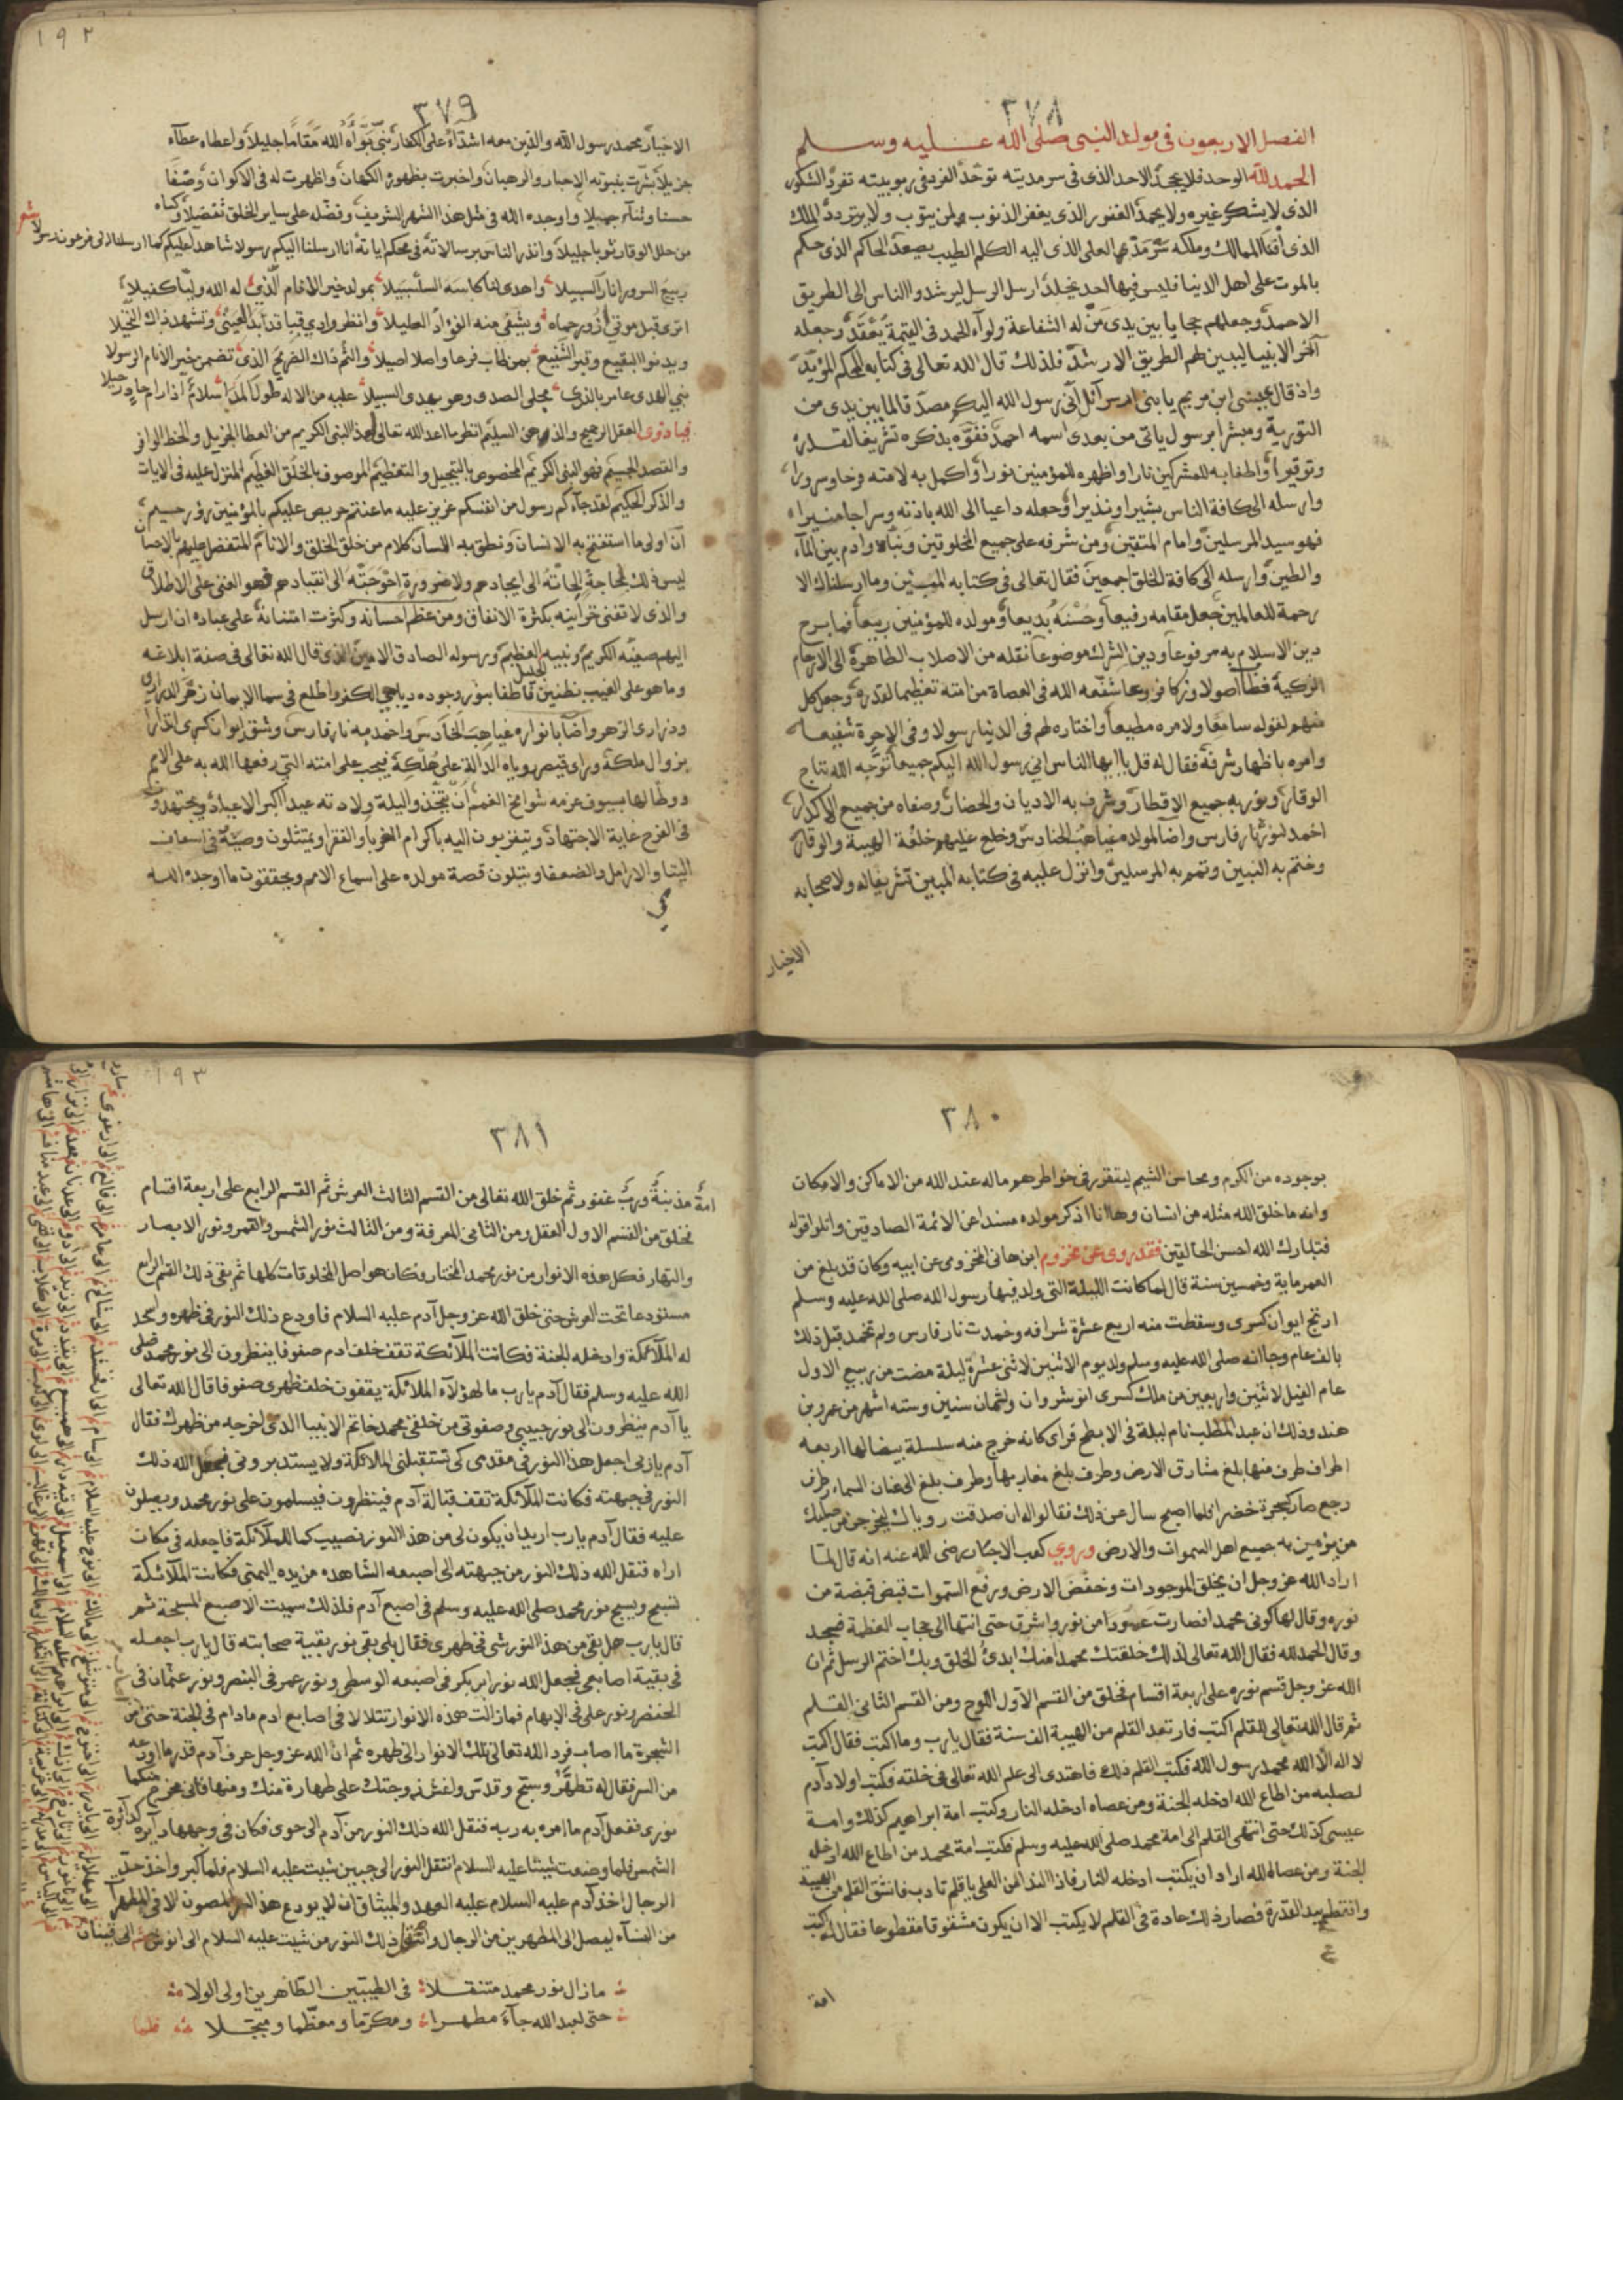 ٣٧٨
الفصل الاربعون فى مولد النبى صلى الله عليه وسلم
الحمد لله الوحد فلا يجحد الاحد الذى فى سرمديته توحد الفرد فى ربوبيته تفرد الشكور
الذى لا يشكر غيره ولا يحمد الغفور الذى يغفر الذنوب لمن يتوب ولا يتردد الملك
الذى افنا الممالك وملكه سرمدى العلى الذى اليه الكلم الطيب يصعد الحاكم الذى حكم
بالموت على اهل الدينا فليس فيها احد يخلد ارسل الرسل ليرشدوا الناس الى الطريق
الاحمد وجعلهم حجابا بين يدى من له الشفاعة ولوآء الحمد فى القيمة يعقد وجعله
آخر الانبيا ليبين لهم الطريق الارشد فلذلك قال الله تعالى فى كتابه المحكم المؤيد
واذ قال عيسى ابن مريم يا بنى اسرآئل انى رسول الله اليكم مصدقا لما بين يدى من
التورية ومبشرا برسول ياتى من بعدى اسمه احمد فنوه بذكره تشريفا لقدره
وتوقيرا واطفا به للمشركين نارا واظهره للمؤمنين نورا واكمل به لامته فرحا وسرورا
وارسله الى كافة الناس بشيرا ونذيرا وجعله داعيا الى الله باذنه وسراجا منيرا
فهو سيد المرسلين وامام المتقين ومن شرفه على جميع المخلوقين ونباه وادم بين المآء
والطين وارسله الى كافة الخلق اجمعين فقال تعالى فى كتابه المبين وما ارسلناك الا
رحمة للعالمين جعل مقامه رفيعا وحسنه بديعا ومولده للمؤمنين ربيعا فما برح
دين الاسلام به مرفوعا ودين الشرك موضوعا نقله من الاصلاب الطاهرة الى الارحام
الزكية فطا اصولا وزكا فروعا شفعه الله فى العصاة من امته تعظيما لقدره وجعل كل
منهم لقوله سامعا ولامره مطيعا واختاره لهم فى الدنيا رسولا وفى الاخرة شفيعا
وامره باظهار شرفه فقال له قل يا ايها الناس انى رسول الله اليكم جميعا توجه الله بتاج
الوقار ونور به جميع الاقطار وشرف به الاديان والحضار وصفاه من جميع الاكدار
اخمد لنوره نار فارس واضآ لمولده غياهب الحنادس وخلع عليهم خلعة الهيبة والوقار
وختم به النبيين وتمم به المرسلين وانزل عليه فى كتابه المبين تشريفا له ولاصحابه
الاخيار
١٩٢
٣٧٩
الاخيار محمد رسول الله والذين معه اشدآء على الكفار نبى بوأه الله مقاما جليلا واعطاه عطآء
جزيلا بشرت بنبوته الاحبار والرهبان واخبرت بظهوره الكهان واظهرت له فى الاكوان وصفا
حسنا وثنآء جميلا واوجده الله فى مثل هذا الشهر الشريف وفضله على ساير الخلق تفضيلا وكساه
من حلل الوقار ثوبا جليلا وانذر الناس برسالاته فى محكم اياته انا ارسلنا اليكم رسولا شاهدا عليكم كما ارسلنا الى فرعون رسولا شعر
ربيع السرور انار السبيلا واهدى لنا كاسه السلسبيلا بمولد خير الانام الذى له الله وليا كفيلا
اترى قبل موتى ازور حماه ويشفى منه الفؤاد العليلا وانظر وادى قبا قد بدا لعينى وتشهد ذاك النخيلا
ويدنوا البقيع وقبر الشفيع بمن طاب فرعا واصلا اصيلا والثم ذاك الضريح الذى تضمن خير الانام الرسولا
نبى الهدى عامر بالندى مجلى الصدى وهو يهدى السبيلا عليه من الاله طول المدا سلام اذا رام حاد رحيلا
فيا ذوى العقل الرجيح والذهن السليم انظر ما اعد الله تعالى لهذا النبى الكريم من العطا الجزيل والحظ الوافر
والقصد الجسيم فهو النبى الكريم المخصوص بالتبجيل والتعظيم الموصوف بالخلق العظيم المنزل عليه فى الايات
والذكر الحكيم لقد جآءكم رسول من انفسكم عزيز عليه ما عنتم حريص عليكم بالمؤمنين رؤف رحيم
ان اولى ما استفتح به الانسان ونطق به اللسان كلام من خلق الخلق والانام المتفضل عليهم بالاحسان
ليس ذلك لحاجة الجاته الى ايجادهم ولا ضرورة احوجته الى انقيادهم فهو الغنى على الاطلاق
والذى لا تفنى خزاينه بكثرة الانفاق ومن عظم احسانه وكثرت امتنانه على عباده ان ارسل
اليهم صفيه الكريم ونبيه العظيم ورسوله الصادق الامين الذى قال الله تعالى فى صفة ابلاغه
وما هو على الغيب بظنين فاطفا بنور وجوده دياجى الكفر واطلع فى سما الايمان زهر الدرارى
ودرارى الزهر واضآ بانواره غياهب الحنادس واخمد به نار فارس وشق ايوان كسرى انذارا
بزوال ملكه ورأى قيصر روياه الدالة على هلكه فيجب على امته التى رفعها الله به على الامم
ووطا لها بسيوف عزمه شوامخ القمم ان يتخذوا ليلة ولادته عيدا اكبر الاعياد ويجتهدون
فى الفرح غاية الاجتهاد ويتقربون اليه باكرام الغربا والفقرا ويمتثلون وصيته فى اسعاف
اليتما والارامل والضعفا ويتلون قصة مولده على اسماع الامم ويحققون ما اوجده الله
٣٨٠
بوجوده من الكرم ومحاسن الشيم ليتقرر فى خواطرهم ما له عند الله من الاماكن والامكان
وانه ما خلق الله مثله من انسان وها انا اذكر مولده مسندا عن الائمة الصادقين واتلوا قوله
فتبارك الله احسن الخالقين فقد روى عن مخزوم ابن هانى المخزومى عن ابيه وكان قد بلغ من
العمر ماية وخمسين سنة قال لما كانت الليلة التى ولد فيها رسول الله صلى الله عليه وسلم
ارتج ايوان كسرى وسقطت منه اربع عشرة شرافه وخمدت نار فارس ولم تخمد قبل ذلك
بالف عام وجا انه صلى الله عليه وسلم ولد يوم الاثنين لاثنى عشرة ليلة مضت من ربيع الاول
عام الفيل لاثنين واربعين من ملك كسرى انوشروان ولثمان سنين وسته اشهر من عمرو بن
هند وذلك ان عبد المطلب نام ليلة فى الابطح فراى كانه خرج منه سلسلة بيضا لها اربعه
اطراف طرف منها بلغ مشارق الارض وطرف بلغ مغاربها وطرف بلغ الى عنان السماء وطرف
رجع صار كشجرة خضرا فلما اصبح سال عن ذلك فقالوا له ان صدقت روياك ليخرجن من صلبك
من يؤمن به جميع اهل السموات والارض وروى كعب الاحبار رضى الله عنه انه قال لما
اراد الله عز وجل ان يخلق الموجودات وخفض الارض ورفع السموات قبض قبضة من
نوره وقال لها كونى محمدا فصارت عمودا من نور واشرق حتى انتها الى حجاب العظمة فسجد
وقال الحمد لله فقال الله تعالى لذلك خلقتك محمدا منك ابدئ الخلق وبك اختم الرسل ثم ان
الله عز وجل قسم نوره على اربعة اقسام فخلق من القسم الاول اللوح ومن القسم الثانى القلم
ثم قال الله تعالى للقلم اكتب فارتعد القلم من الهيبة الف سنة فقال يا رب وما اكتب فقال اكتب
لا اله الا الله محمد رسول الله فكتب القلم ذلك فاهتدى الى علم الله تعالى فى خلقه فكتب اولاد آدم
لصلبه من اطاع الله ادخله الجنة ومن عصاه ادخله النار وكتب امة ابراهيم كذلك وامة
عيسى كذلك حتى انتهى القلم الى امة محمد صلى الله عليه وسلم فكتب امة محمد من اطاع الله ادخله
الجنة ومن عصا الله اراد ان يكتب ادخله النار فاذا الندا من العلى يا قلم تادب فانشق القلم من الهيبة
وانقطع بيد القدرة فصار ذلك عادة فى القلم لا يكتب الا ان يكون مشقوقا مقطوعا فقال له اكتب
امة
١٩٣
٣٨١
امة مذنبة ورب غفور ثم خلق الله تعالى من القسم الثالث العرش ثم القسم الرابع على اربعة اقسام
فخلق من القسم الاول العقل ومن الثانى المعرفة ومن الثالث نور الشمس والقمر ونور الابصار
والنهار فكل هذه الانوار من نور محمد المختار فكان هو اصل المخلوقات كلها ثم بقى ذلك القسم الرابع
مستودعا تحت العرش حتى خلق الله عز وجل آدم عليه السلام فاودع ذلك النور فى ظهره واسجد
له الملآئكة وادخله الجنة فكانت الملآئكة تقف خلف ادم صفوفا ينظرون الى نور محمد صلى
الله عليه وسلم فقال آدم يا رب ما لهؤلآء الملائكة يقفون خلف ظهرى صفوفا قال الله تعالى
يا آدم ينظرون الى نور حبيبى وصفوتى من خلقى محمد خاتم الانبيا الذى اخرجه من ظهرك فقال
آدم يا رب اجعل هذا النور فى مقدمى كى تستقبلنى الملائكة ولا يستدبرونى فجعل الله ذلك
النور فى جبهته فكانت الملآئكة تقف قبالة آدم فينظرون فيسلمون على نور محمد ويصلون
عليه فقال آدم يا رب اريد ان يكون لى من هذا النور نصيب كما للملآئكة فاجعله فى مكان
اراه فنقل الله ذلك النور من جبهته الى اصبعه الشاهده من يده اليمنى فكانت الملآئكة
تسبح ويسبح نور محمد صلى الله عليه وسلم فى اصبع آدم فلذلك سميت الاصبع المسبحة ثم
قال يا رب هل بقى من هذا النور شى فى ظهرى فقال بلى بقى نور بقية صحابته قال يا رب اجعله
فى بقية اصابعى فجعل الله نور ابى بكر فى اصبعه الوسطى ونور عمر فى البنصر ونور عثمان فى
الخنصر ونور على فى الابهام فما زالت هذه الانوار تتلالا فى اصابع ادم ما دام فى الجنة حتى
الشجرة ما اصاب فرد الله تعالى تلك الانوار الى ظهره ثم ان الله عز وجل عرف آدم قدر ما اودعه
من السر فقال له تطهر وسبح وقدس واغش زوجتك على طهارة منك ومنها فانى مخرج منكما
نورى ففعل آدم ما امره به ربه فنقل الله ذلك النور من آدم الى حوى فكان فى وجهها دآيرة كدآئرة
الشمس فلما وضعت شيثا عليه السلام انتقل النور الى جبين شيث عليه السلام فلما كبر واخذ حد
الرجال اخذ آدم عليه السلام عليه العهد والميثاق ان لا يودع هذا السر المصون الا فى المطهرات
من النسآء ليصل الى المطهرين من الرجال وانتقل ذلك النور من شيث عليه السلام الى انوش ثم الى قينان
ما زال نور محمد متنقلا فى الطيبين الطاهرين اولى الولا
حتى لعبد الله جآء مطهرا ومكرما ومعظما ومبجلا فلما